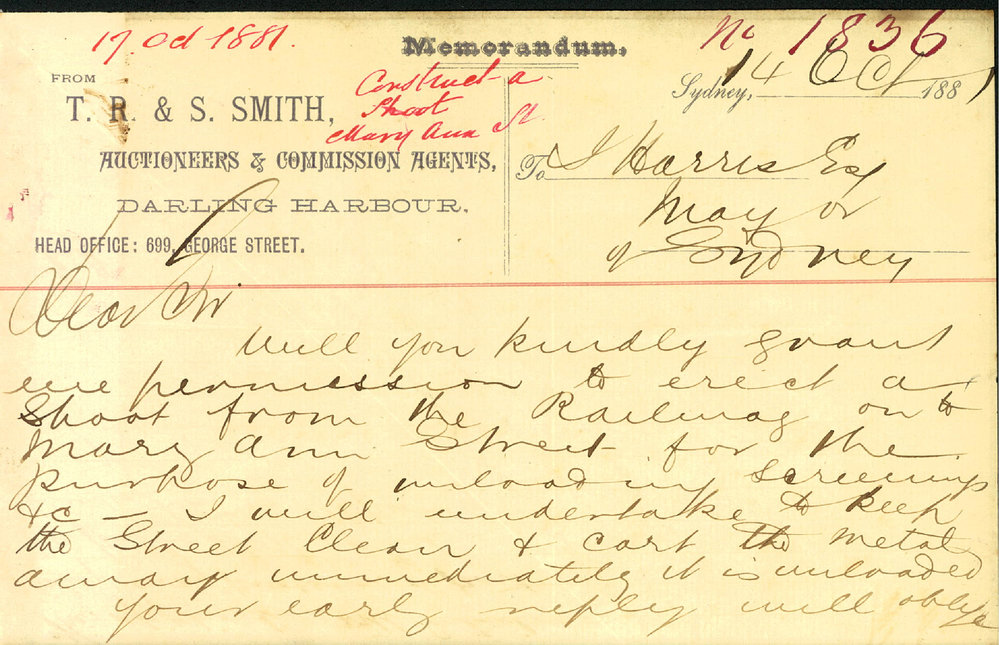 17 Oct 1881.
Memorandum.
No 1836
Sydney, 14 Oct 1881
FROM
T. R. & S. SMITH,
Construct a
Shoot
Mary Ann St.
AUCTIONEERS & COMMISSION AGENTS,
DARLING HARBOUR,
HEAD OFFICE: 699, GEORGE STREET.
To J Harris Esq
Mayor
of Sydney
Dear Sir
Will you kindly grant
me permission to erect a
Shoot from the Railway on to
Mary Ann Street for the
purpose of unloading screenings
&c – I will undertake to keep
the Street Clean & cart the metal
away immediately it is unloaded
your early reply will oblige